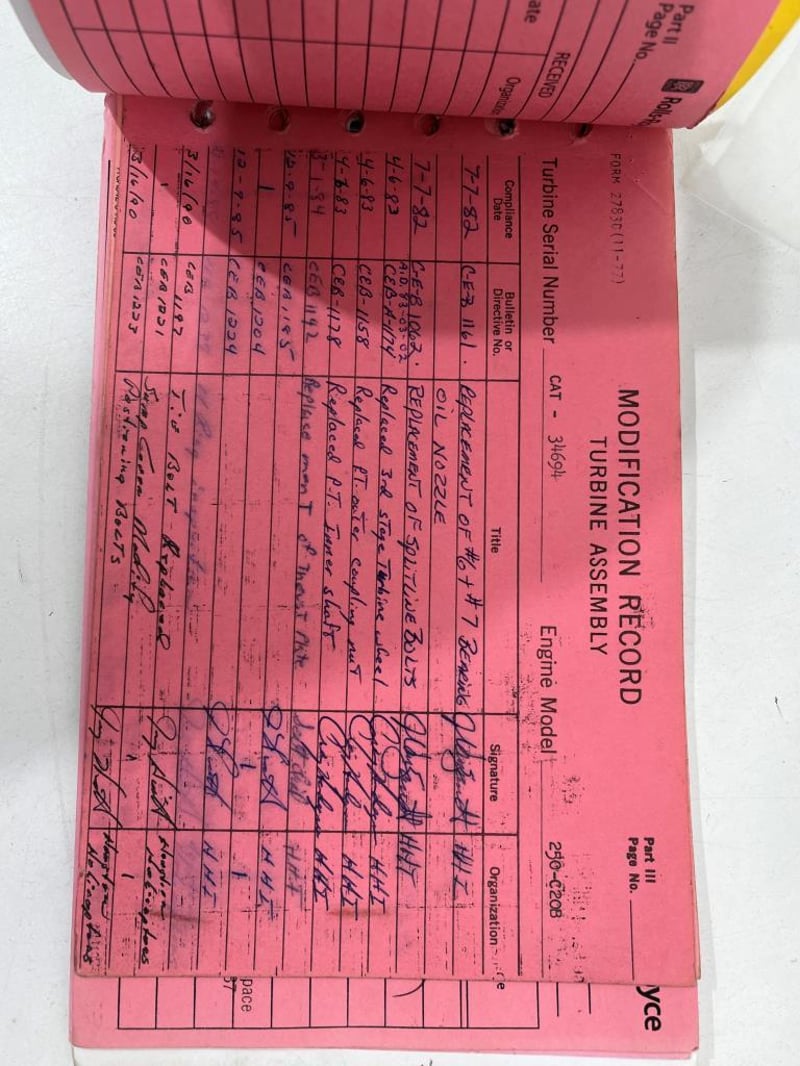 Part II
Page No.
RECEIVED
Organiz
ate
FORM 2783D(11-77)
Part III
Page No.
MODIFICATION RECORD
TURBINE ASSEMBLY
Turbine Serial Number CAT - 34694 Engine Model 250-C20B
Compliance Date Bulletin or Directive No. Title Signature Organization
7-7-82 C-E-B 1161. REPLACEMENT OF #6 + #7 BEARING HHI
OIL NOZZLE
7-7-82 C-E-B 1062. REPLACEMENT OF SPLITLINE BOLTS HHI
A.D. 83-03-02
4-6-83 CEB-A-1174 Replaced 3rd stage Turbine wheel HHI
4-6-83 CEB-1158 Replaced P.T. outer coupling nut HHI
4-6-83 CEB-1178 Replaced P.T. Inner shaft HHI
3-1-84 CEB 1192 Replacement of Thrust Plate HHI
12-9-85 CEB 1195 HHI
CEB 1204
12-9-85 CEB 1224 HHI
3/16/90 CEB 1197 Tie Bolt - Replaced Houston Helicopters
CEB 1221
3/16/90 CEB 1223 Positioning Bolts Houston Helicopters
pace
yce